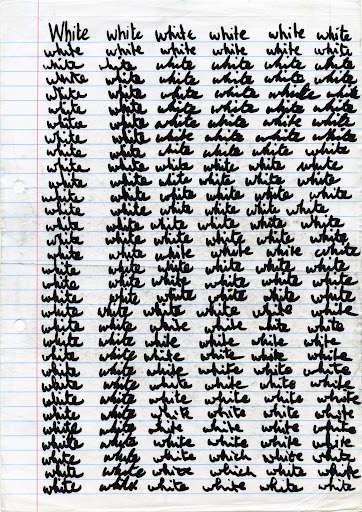 White white white white white white
white white white white white white
white white white white white white
white white white white white white
white white white white white white
white white white white white white
white white white white white white
white white white white white white
white white white white white white
white white white white white white
white white white white white white
white white white white white white
white white white white white white
white white white white white white
white white white white white white
white white white white white white
white white white white white white
white white white white white white
white white white white white white
white white white white white white
white white white white white white
white white white white white
white white white white white white
white white white white white wife
white white white white white white
white white white white white white
white white white white white white
white white white white white white
white white white white white white
white white white white white white
white white white white white white
white white white which white white
white white white which white white
white white white white white